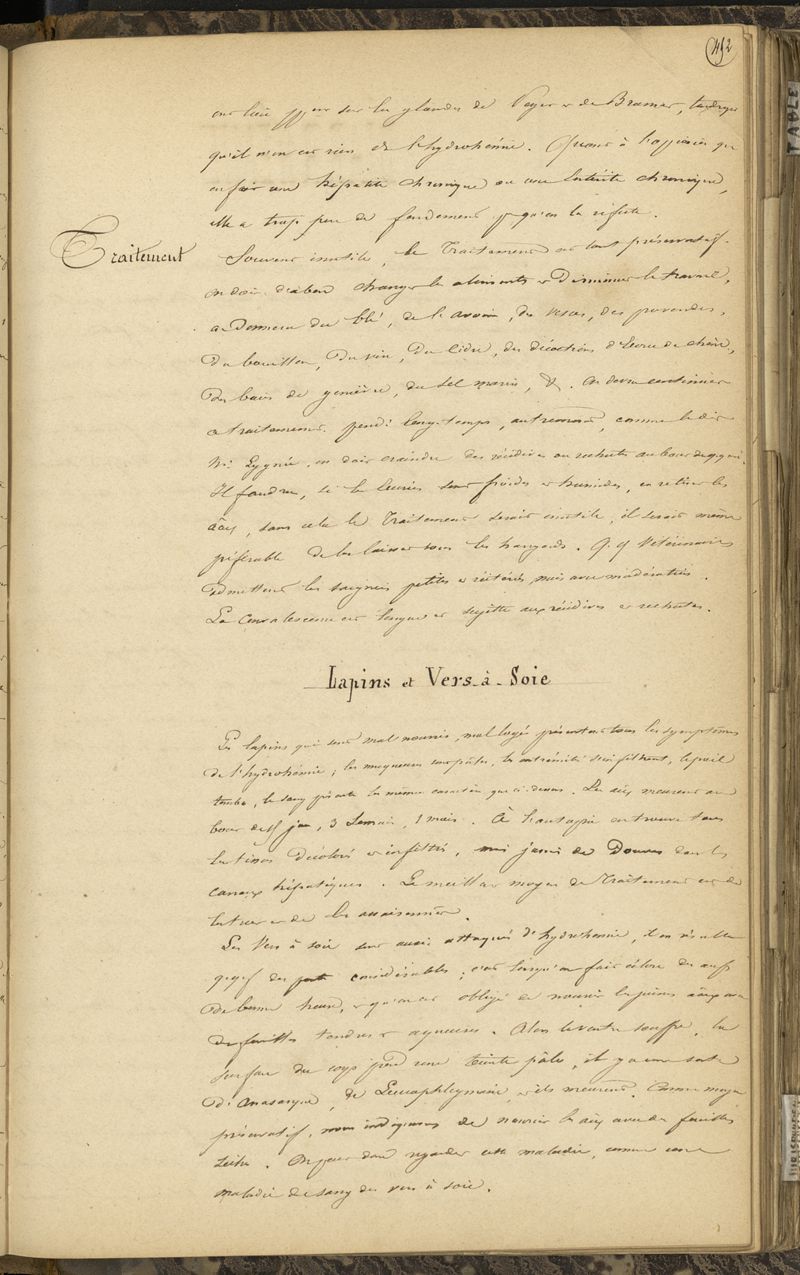 452
ont lieu sur les glandes de Peyer et de Brunner, tandis que
qu'il n'en est rien de l'hydrohémie. Quant à l'opinion qui
en fait une hépatite chronique ou une entérite chronique,
elle a trop peu de fondement pr qu'on la réfute.
Traitement
Souvent inutile, le Traitement est tout préservatif.
on doit d'abord changer les aliments et Diminuer le travail,
et Donner du blé, de l'avoine, des vesces, des provendes,
Du bouillon, Du vin, Du Cidre, des décoctions d'Ecorce de chêne,
Des baies de genièvre, du sel marin, &. On devra continuer
ce traitement pendt longtemps, autrement, comme le dit
Mr , on doit craindre des récidives ou rechutes au bout de
Il faudra, si les écuries sont froides et humides, en retirer les
aux, sans cela le Traitement serait inutile, il serait même
préférable de les laisser sous les hangards. q.q Vétérinaires
admettent les saignées petites et réitérées mais avec modération.
La Convalescence est longue et sujette aux récidives et rechutes.
Lapins et Vers-à-Soie
Les lapins qui sont mal nourris, mal logés présentent tous les symptômes
de l'hydrohémie; les muqueuses sont pâles, les extrémités s'infiltrent, le poil
tombe, le sang présente les mêmes caractères que ci-dessus. Les aux meurent au
bout de 15 jours, 3 Semaines, 1 mois. À l'autopsie on trouve tous
les tissus Décolorés et infiltrés, mais jamais de Douves dans les
canaux hépatiques. Le meilleur moyen de Traitement est de
les tuer et de les assaisonner.
Les Vers à soie sont aussi attaqués d'hydrohémie, il en résulte
qqf des pertes considérables; c'est lorsqu'on fait éclore des œufs
De bonne heure, et qu'on est obligé de nourrir les jeunes aux avec
des feuilles tendres et aqueuses. Alors le ventre souffre, la
surface du corps prend une teinte pâle, il y a une sorte
D'anasarque, de Leucophlegmasie, et ils meurent. Comme moyen
préservatif, nous indiquons de nourrir les aux avec des feuilles
sèches. On peut donc regarder cette maladie, comme une
maladie de sang des vers à soie.
TABLE